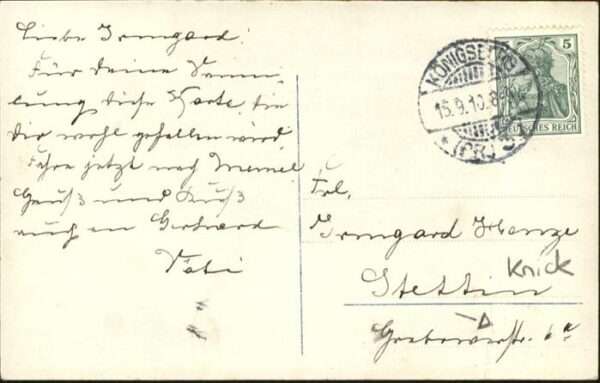 Liebe Irmgard!
Für deine Samm-
lung diese Karte, die
Dir wohl gefallen wird.
Fahre jetzt nach Memel
Gruß und Kuß
auch an Gerhard
Vati
5
DEUTSCHES REICH
KÖNIGSBERG
15.9.10.8-9N
* (PR.) 5
Frl.
Irmgard Henze
Stettin
Knick
Grabowerstr. 6a